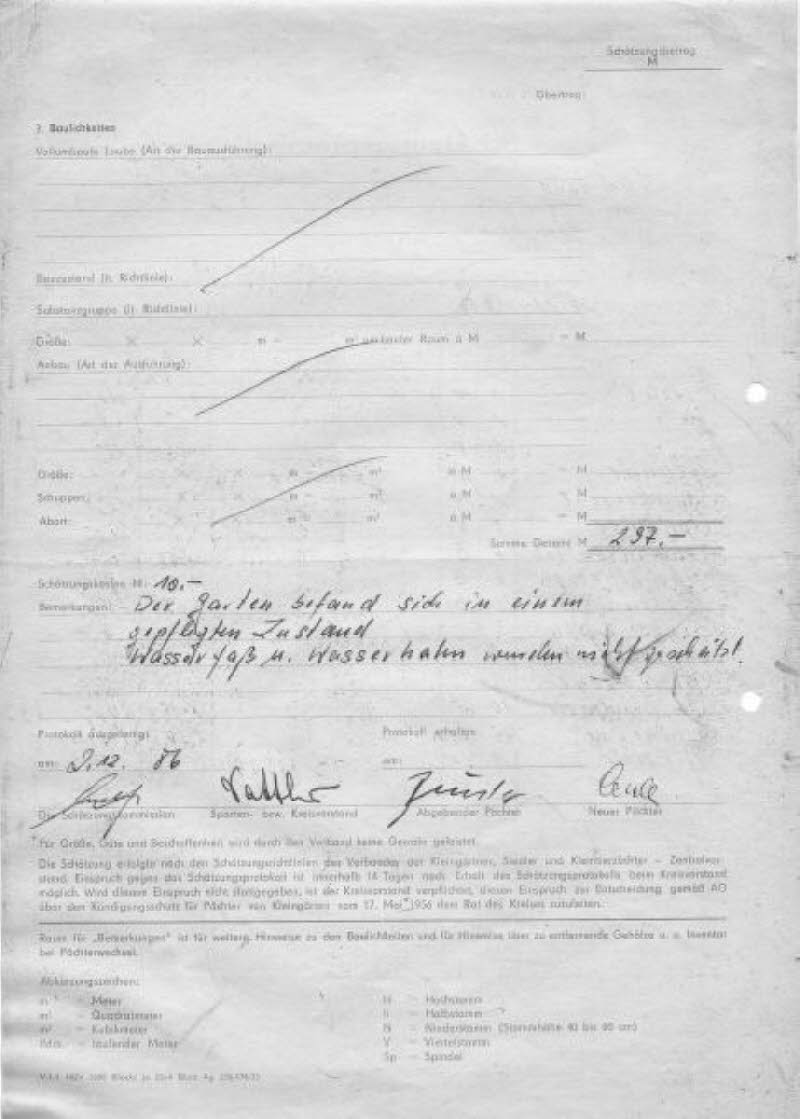 Schätzungsbetrag
M
Übertrag:
3. Baulichkeiten
Laube (Art der Bauausführung):
Bauzustand (lt. Richtlinie):
(lt. Richtlinie):
Größe: × × m = m³ umbauter Raum à M = M
Anbau (Art der Ausführung):
Größe: × × m = m³ à M = M
Schuppen: × × m = m³ à M = M
Abort: × × m = m³ à M = M
Summe M 297,-
Schätzungskosten M: 10,-
Bemerkungen: Der Garten befand sich in einem
gepflegten Zustand
Wasserfaß u. Wasserhahn wurden nicht geschätzt.
Protokoll ausgefertigt
Protokoll erhalten
am: 2.12. 86
am:
Die Schätzungskommission
Sparten- bzw. Kreisvorstand
Abgebender Pächter
Neuer Pächter
Für Größe, Güte und Beschaffenheit wird durch den Verband keine Gewähr geleistet.
Die Schätzung erfolgte nach den Schätzungsrichtlinien des Verbandes der Kleingärtner, Siedler und Kleintierzüchter – Zentralvor-
stand. Einspruch gegen das Schätzungsprotokoll ist innerhalb 14 Tagen nach Erhalt des Schätzungsprotokolls beim Kreisvorstand
möglich. Wird diesem Einspruch nicht stattgegeben, ist der Kreisvorstand verpflichtet, diesen Einspruch zur Entscheidung gemäß AO
über den Kündigungsschutz für Pächter von Kleingärten vom 17. Mai 1956 dem Rat des Kreises zuzuleiten.
Raum für „Bemerkungen" ist für weitere Hinweise zu den Baulichkeiten und für Hinweise über zu entfernende Gehölze u. a. Inventar
bei Pächterwechsel.
Abkürzungszeichen:
m – Meter
m² – Quadratmeter
m³ – Kubikmeter
lfd.m – laufender Meter
H – Hochstamm
h – Halbstamm
N – Niederstamm (Stammhöhe 40 bis 60 cm)
V – Viertelstamm
Sp – Spindel